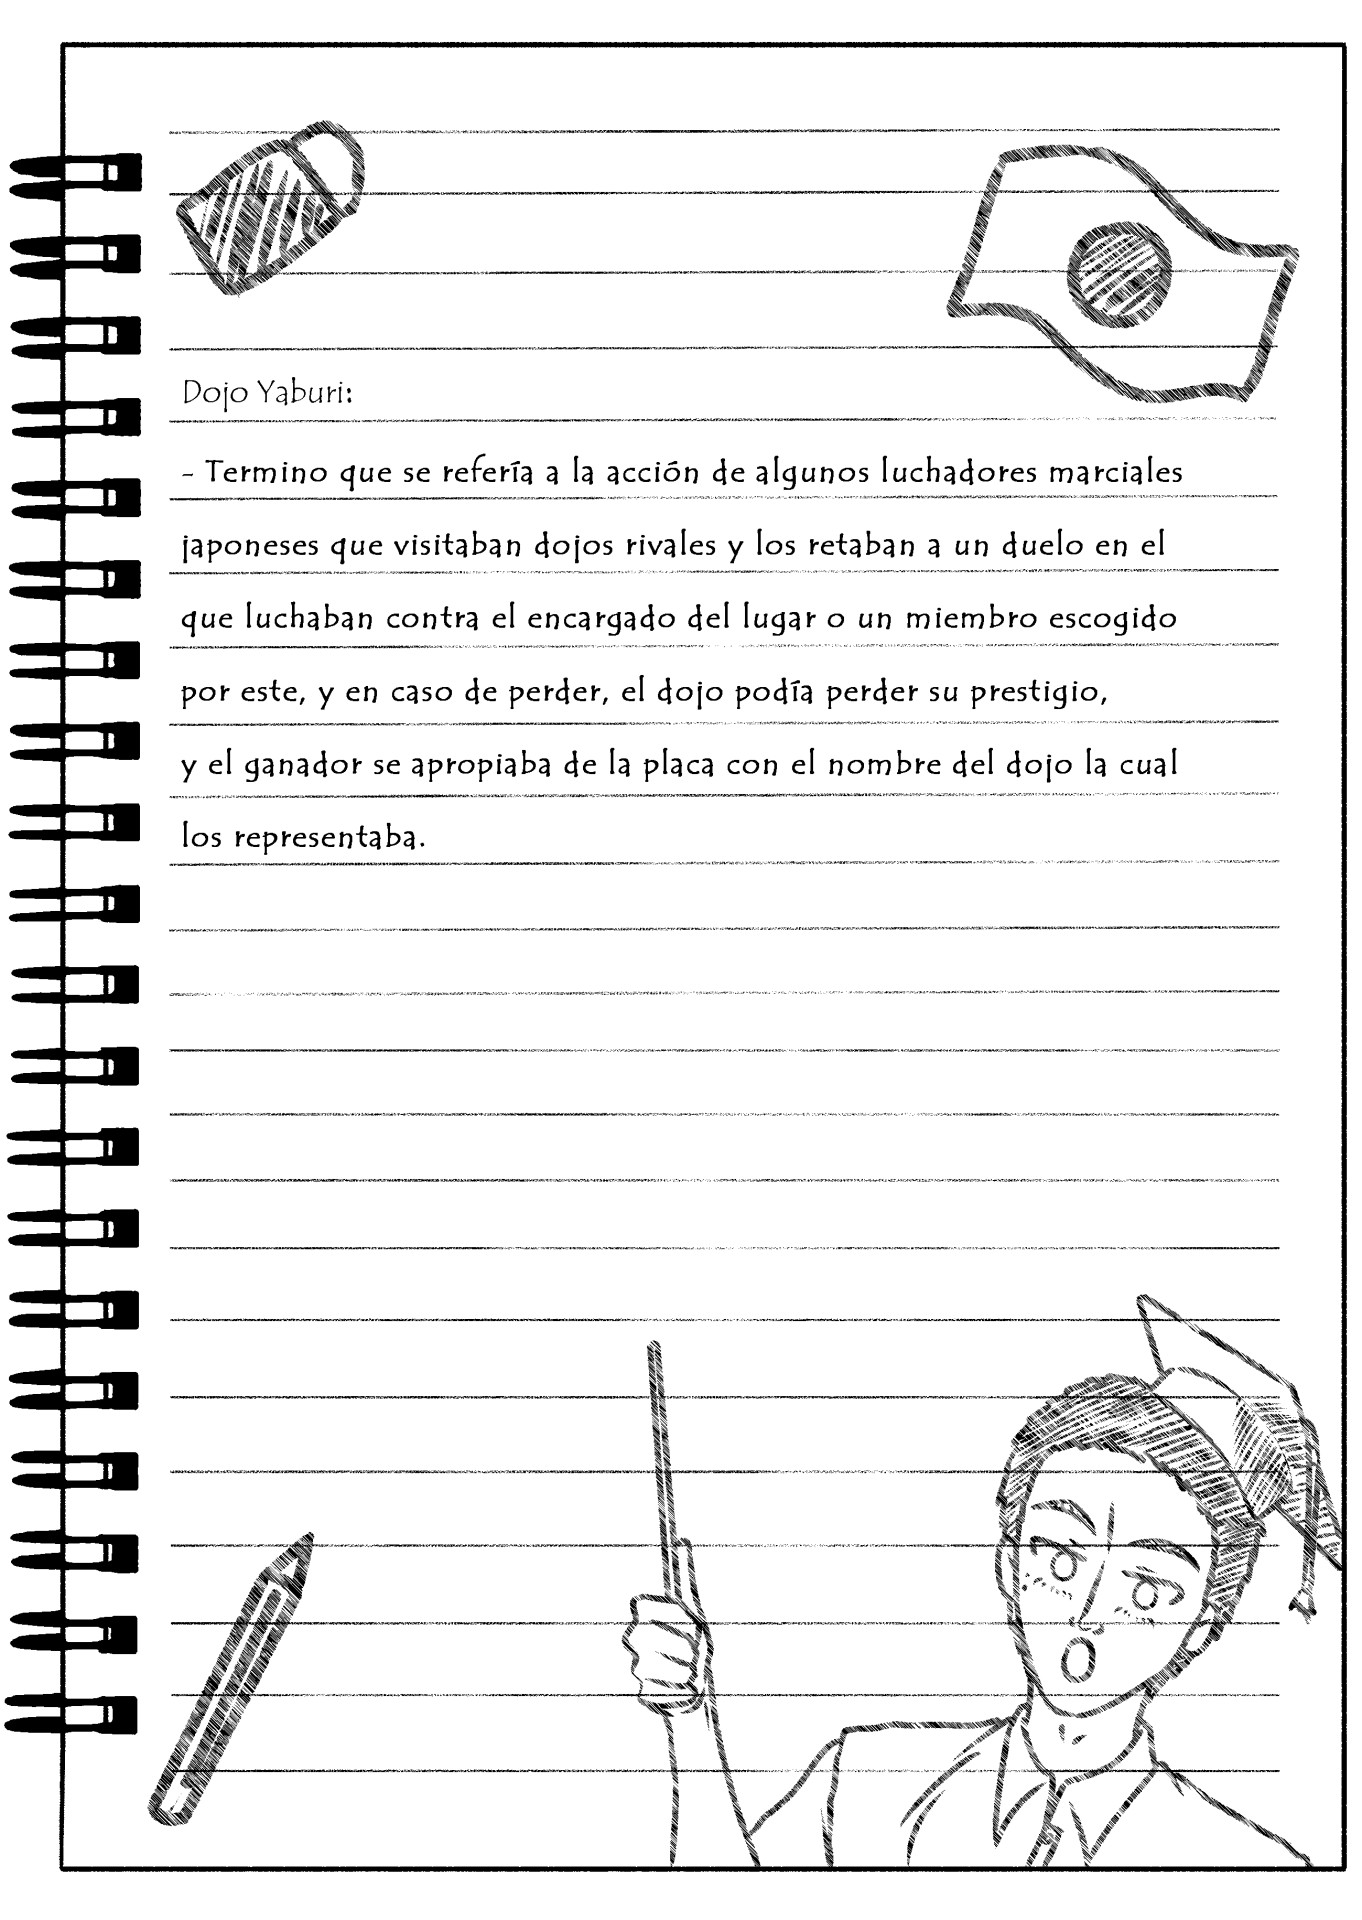 Dojo Yaburi:
- Termino que se refería a la acción de algunos luchadores marciales
japoneses que visitaban dojos rivales y los retaban a un duelo en el
que luchaban contra el encargado del lugar o un miembro escogido
por este, y en caso de perder, el dojo podía perder su prestigio,
y el ganador se apropiaba de la placa con el nombre del dojo la cual
los representaba.